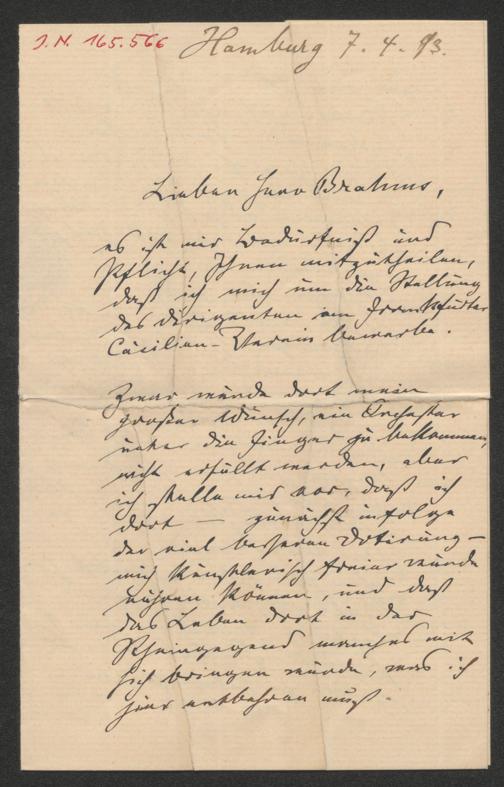 J.N. 165.566
Hamburg 7. 4. 93.
Lieber Herr Brahms,
es ist mir Bedürfniß und
Pflicht, Ihnen mitzutheilen,
daß ich mich um die Stellung
des Dirigenten am Frankfurter
Cäcilien-Verein bewerbe.
Zwar würde dort mein
großer Wunsch, ein Orchester
unter die Finger zu bekommen,
nicht erfüllt werden, aber
ich stelle mir vor, daß ich
dort — zunächst infolge
der viel besseren Dotirung —
mich künstlerisch freier würde
rühren können, und daß
das Leben dort in der
Rheingegend manches mit
sich bringen würde, was ich
hier entbehren muß.